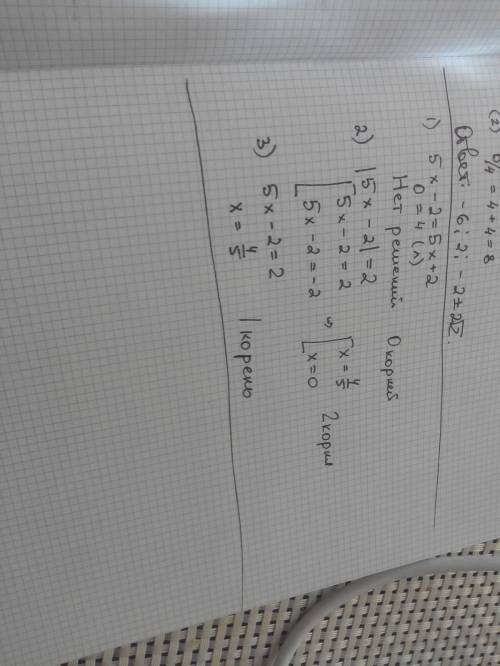 (2) D/4 = 4 + 4 = 8
Ответ: - 6; 2; - 2 ± 2√2.
1) 5x - 2 = 5x + 2
0 = 4 (л)
Нет решений 0 корней
2) |5x - 2| = 2
[ 5x - 2 = 2 ⇔ [ x = 4/5
[ 5x - 2 = -2 [ x = 0 2 корня
3) 5x - 2 = 2
x = 4/5 1 корень